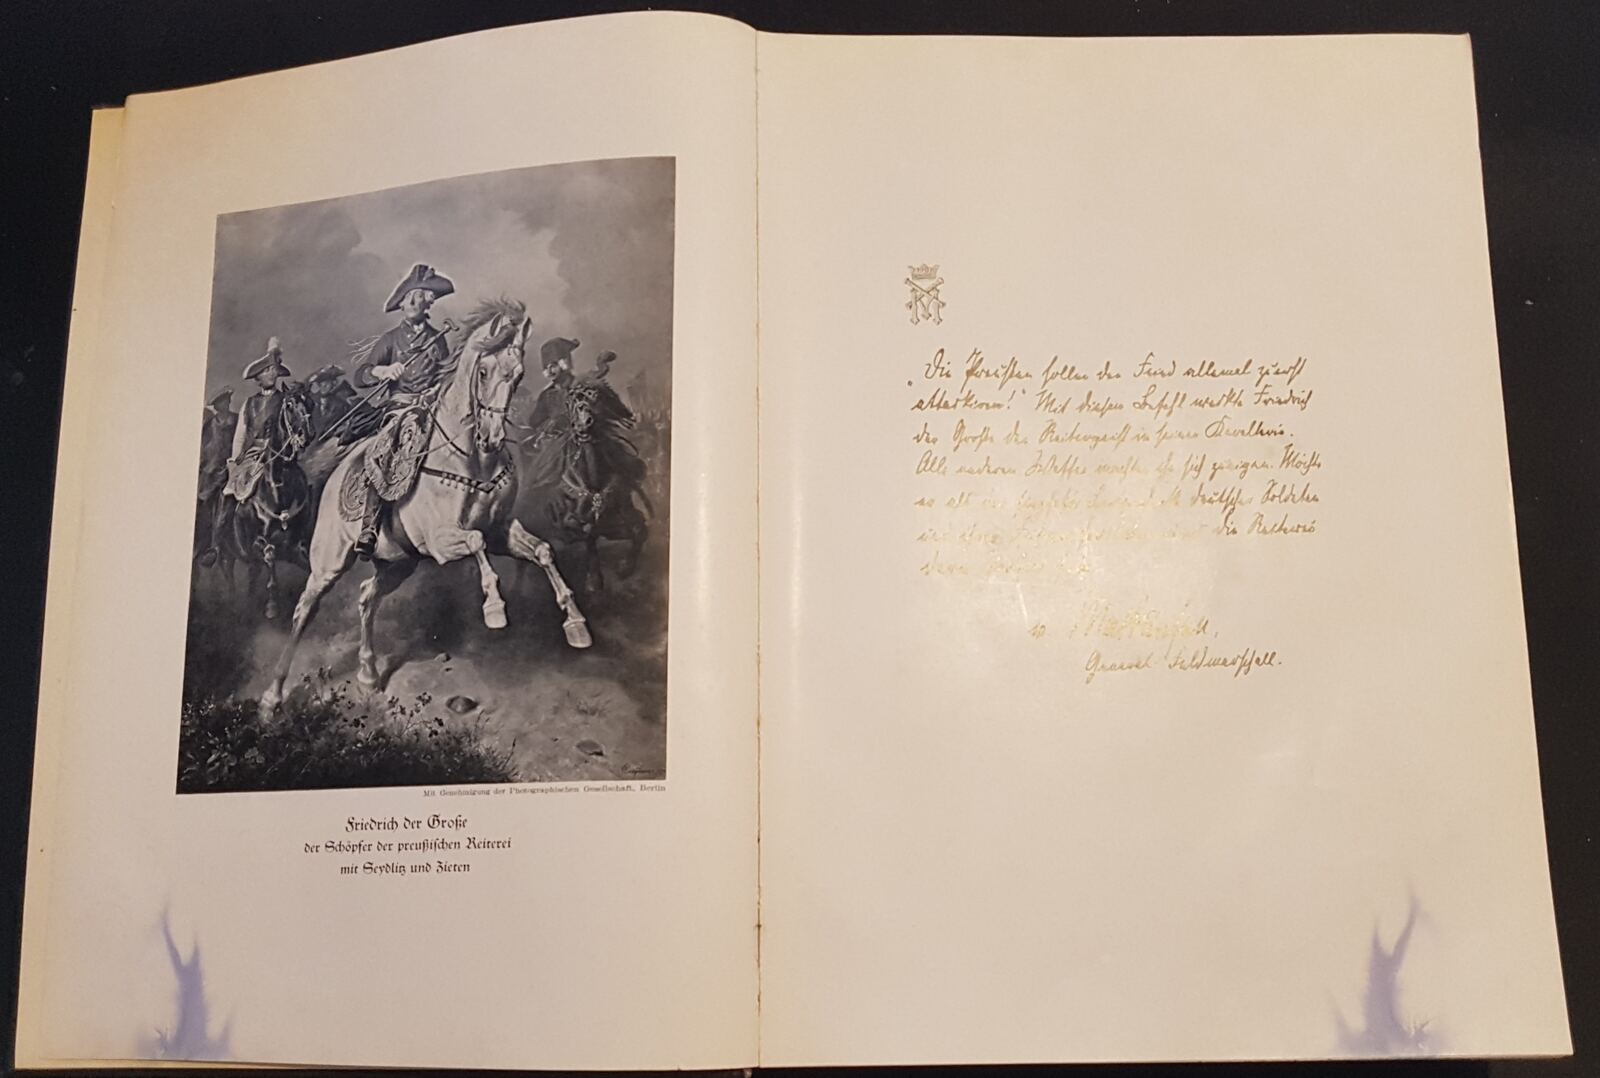 Mit Genehmigung der Photographischen Gesellschaft, Berlin
Friedrich der Große
der Schöpfer der preußischen Reiterei
mit Seydlitz und Zieten
„Die Preußen sollen den Feind allemal zuerst
attackieren!" Mit diesem Befehl weckte Friedrich
der Große den Reitergeist in seiner Kavallerie.
Alle anderen Waffen machten ihn sich zu eigen. Möchte
er als deutscher Soldaten
und die Reiterei
v. Mackensen,
General-Feldmarschall.